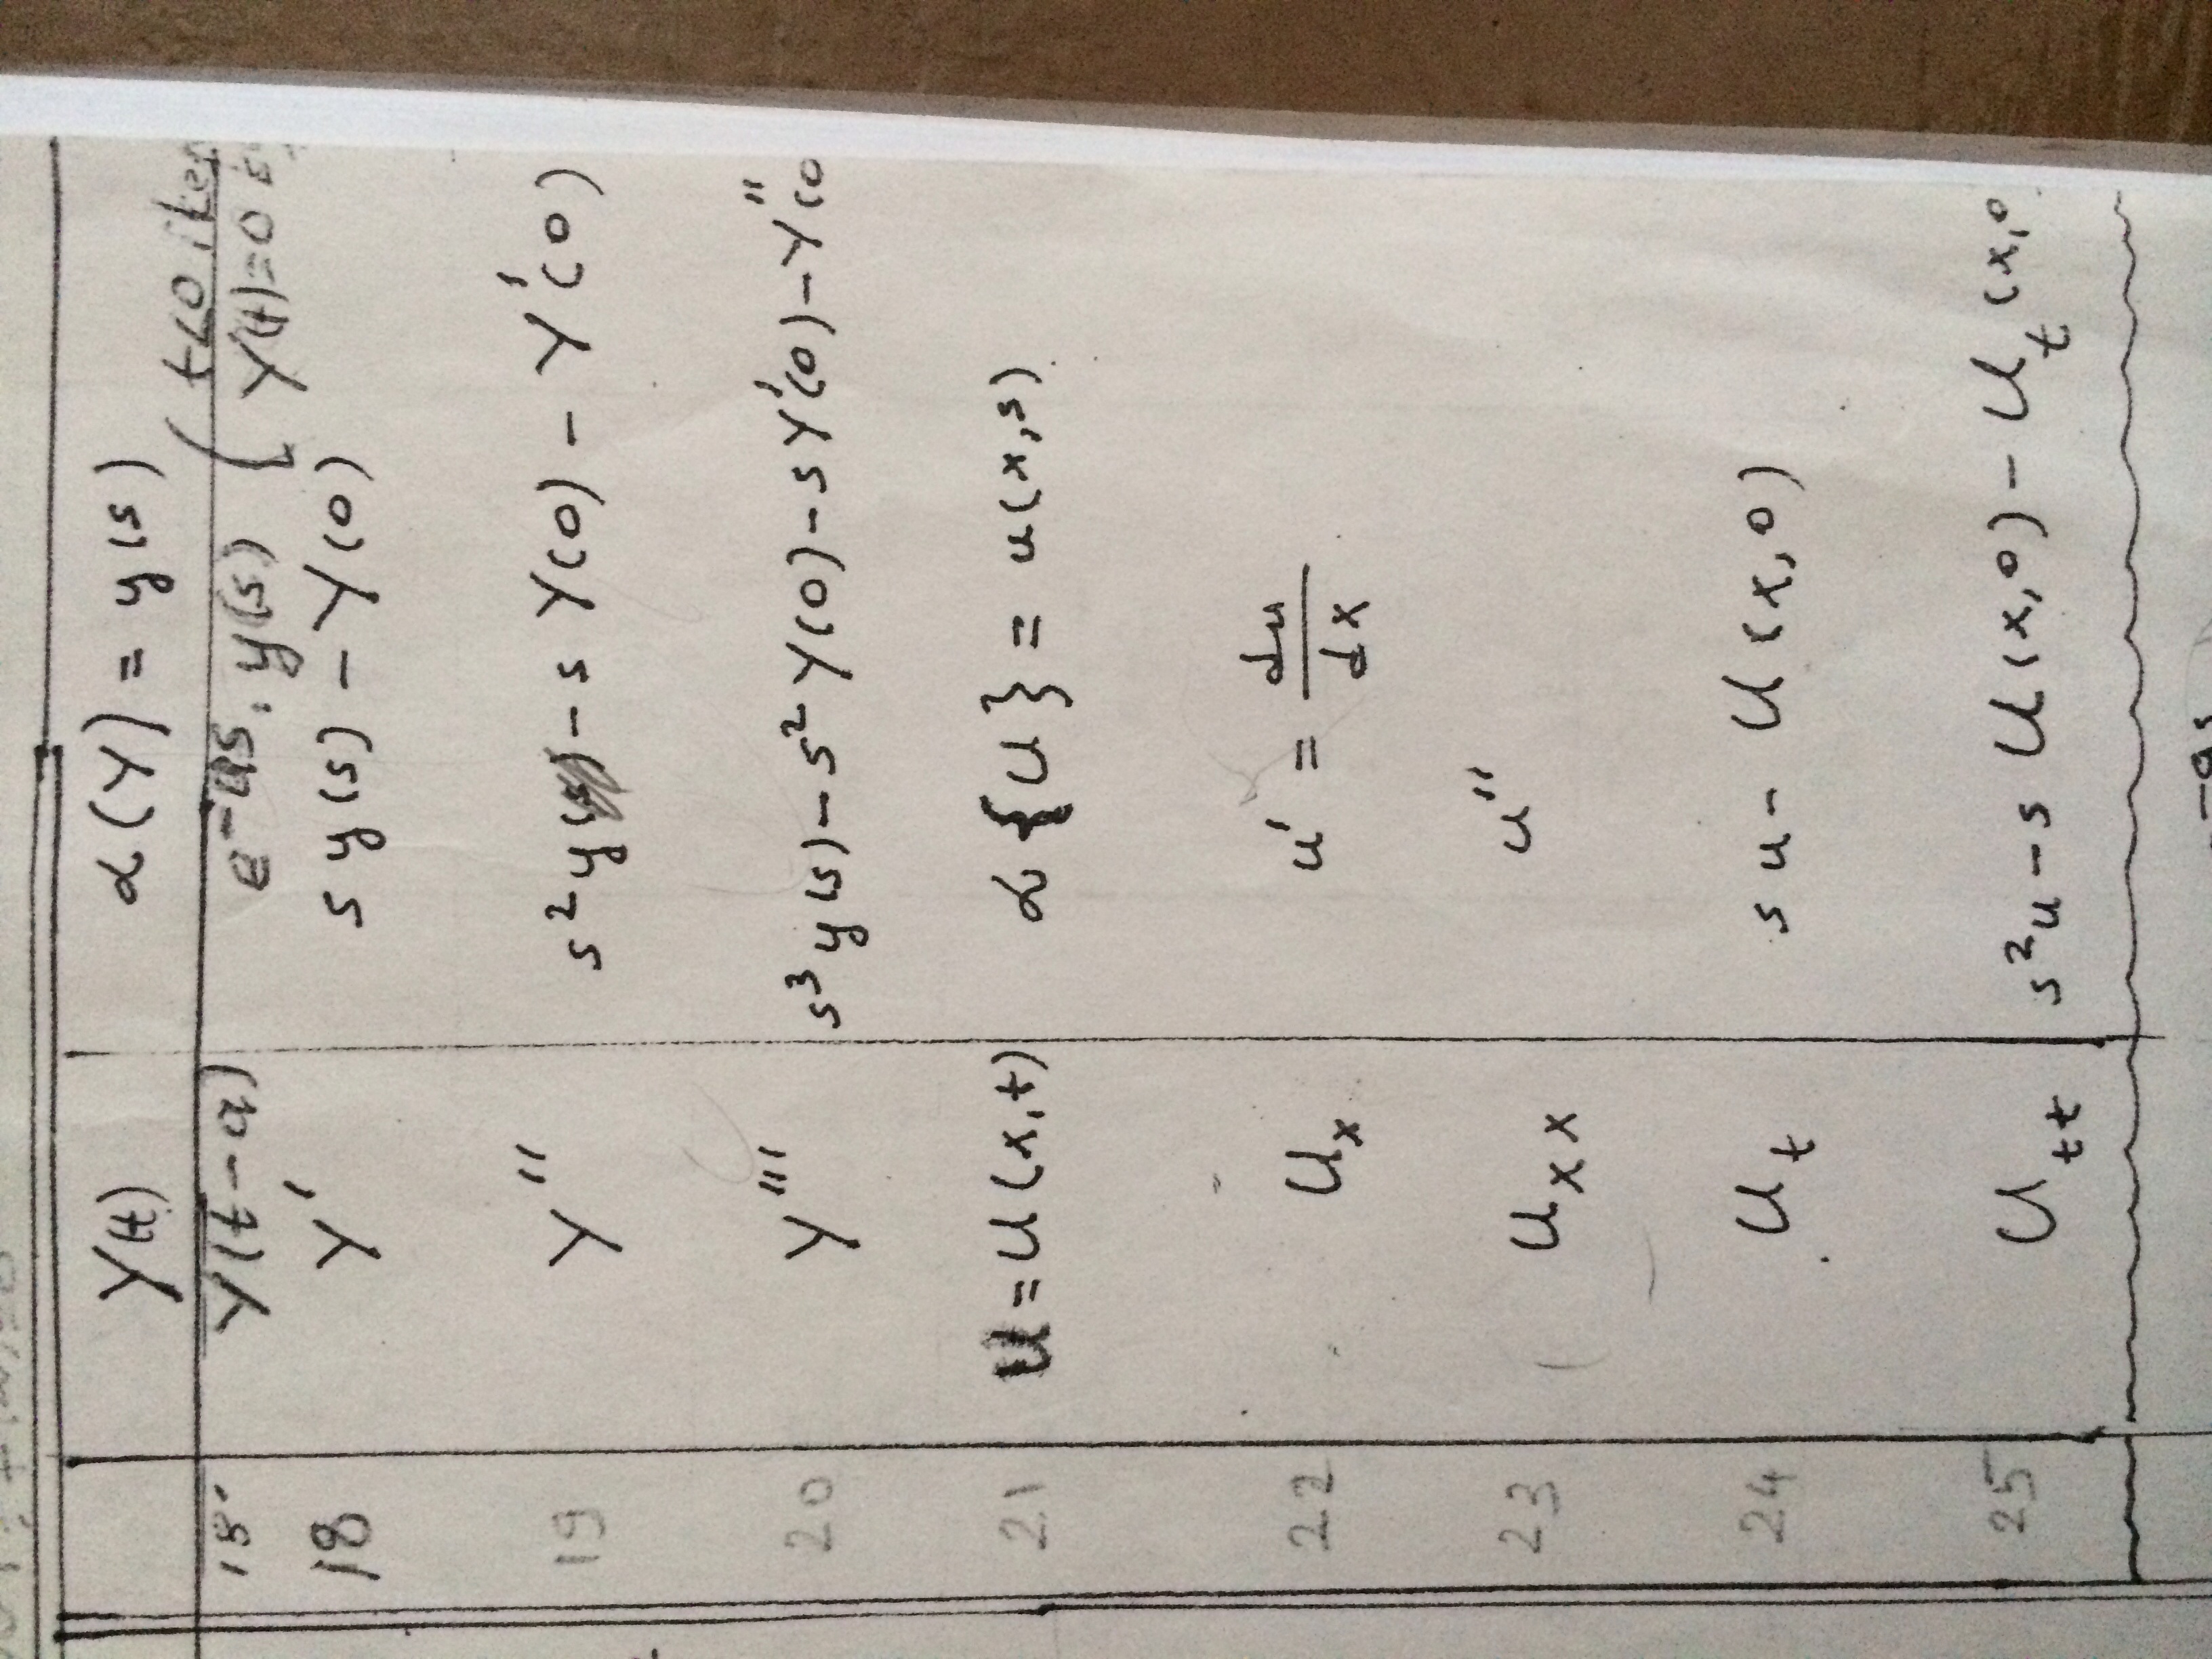 Y(t) ℒ(Y) = y(s)
18' Y(t-a) e^-as . y(s) ( t<0 iken
Y(t)=0
18 Y' s y(s) - Y(0)
19 Y'' s²y(s) - s Y(0) - Y'(0)
20 Y''' s³y(s) - s² Y(0) - s Y'(0) - Y''(0
21 U = U(x,t) ℒ{U} = u(x,s)
22 U_x u' = du/dx
23 U_xx u''
24 U_t s u - U(x,0)
25 U_tt s²u - s U(x,0) - U_t (x,0
-as